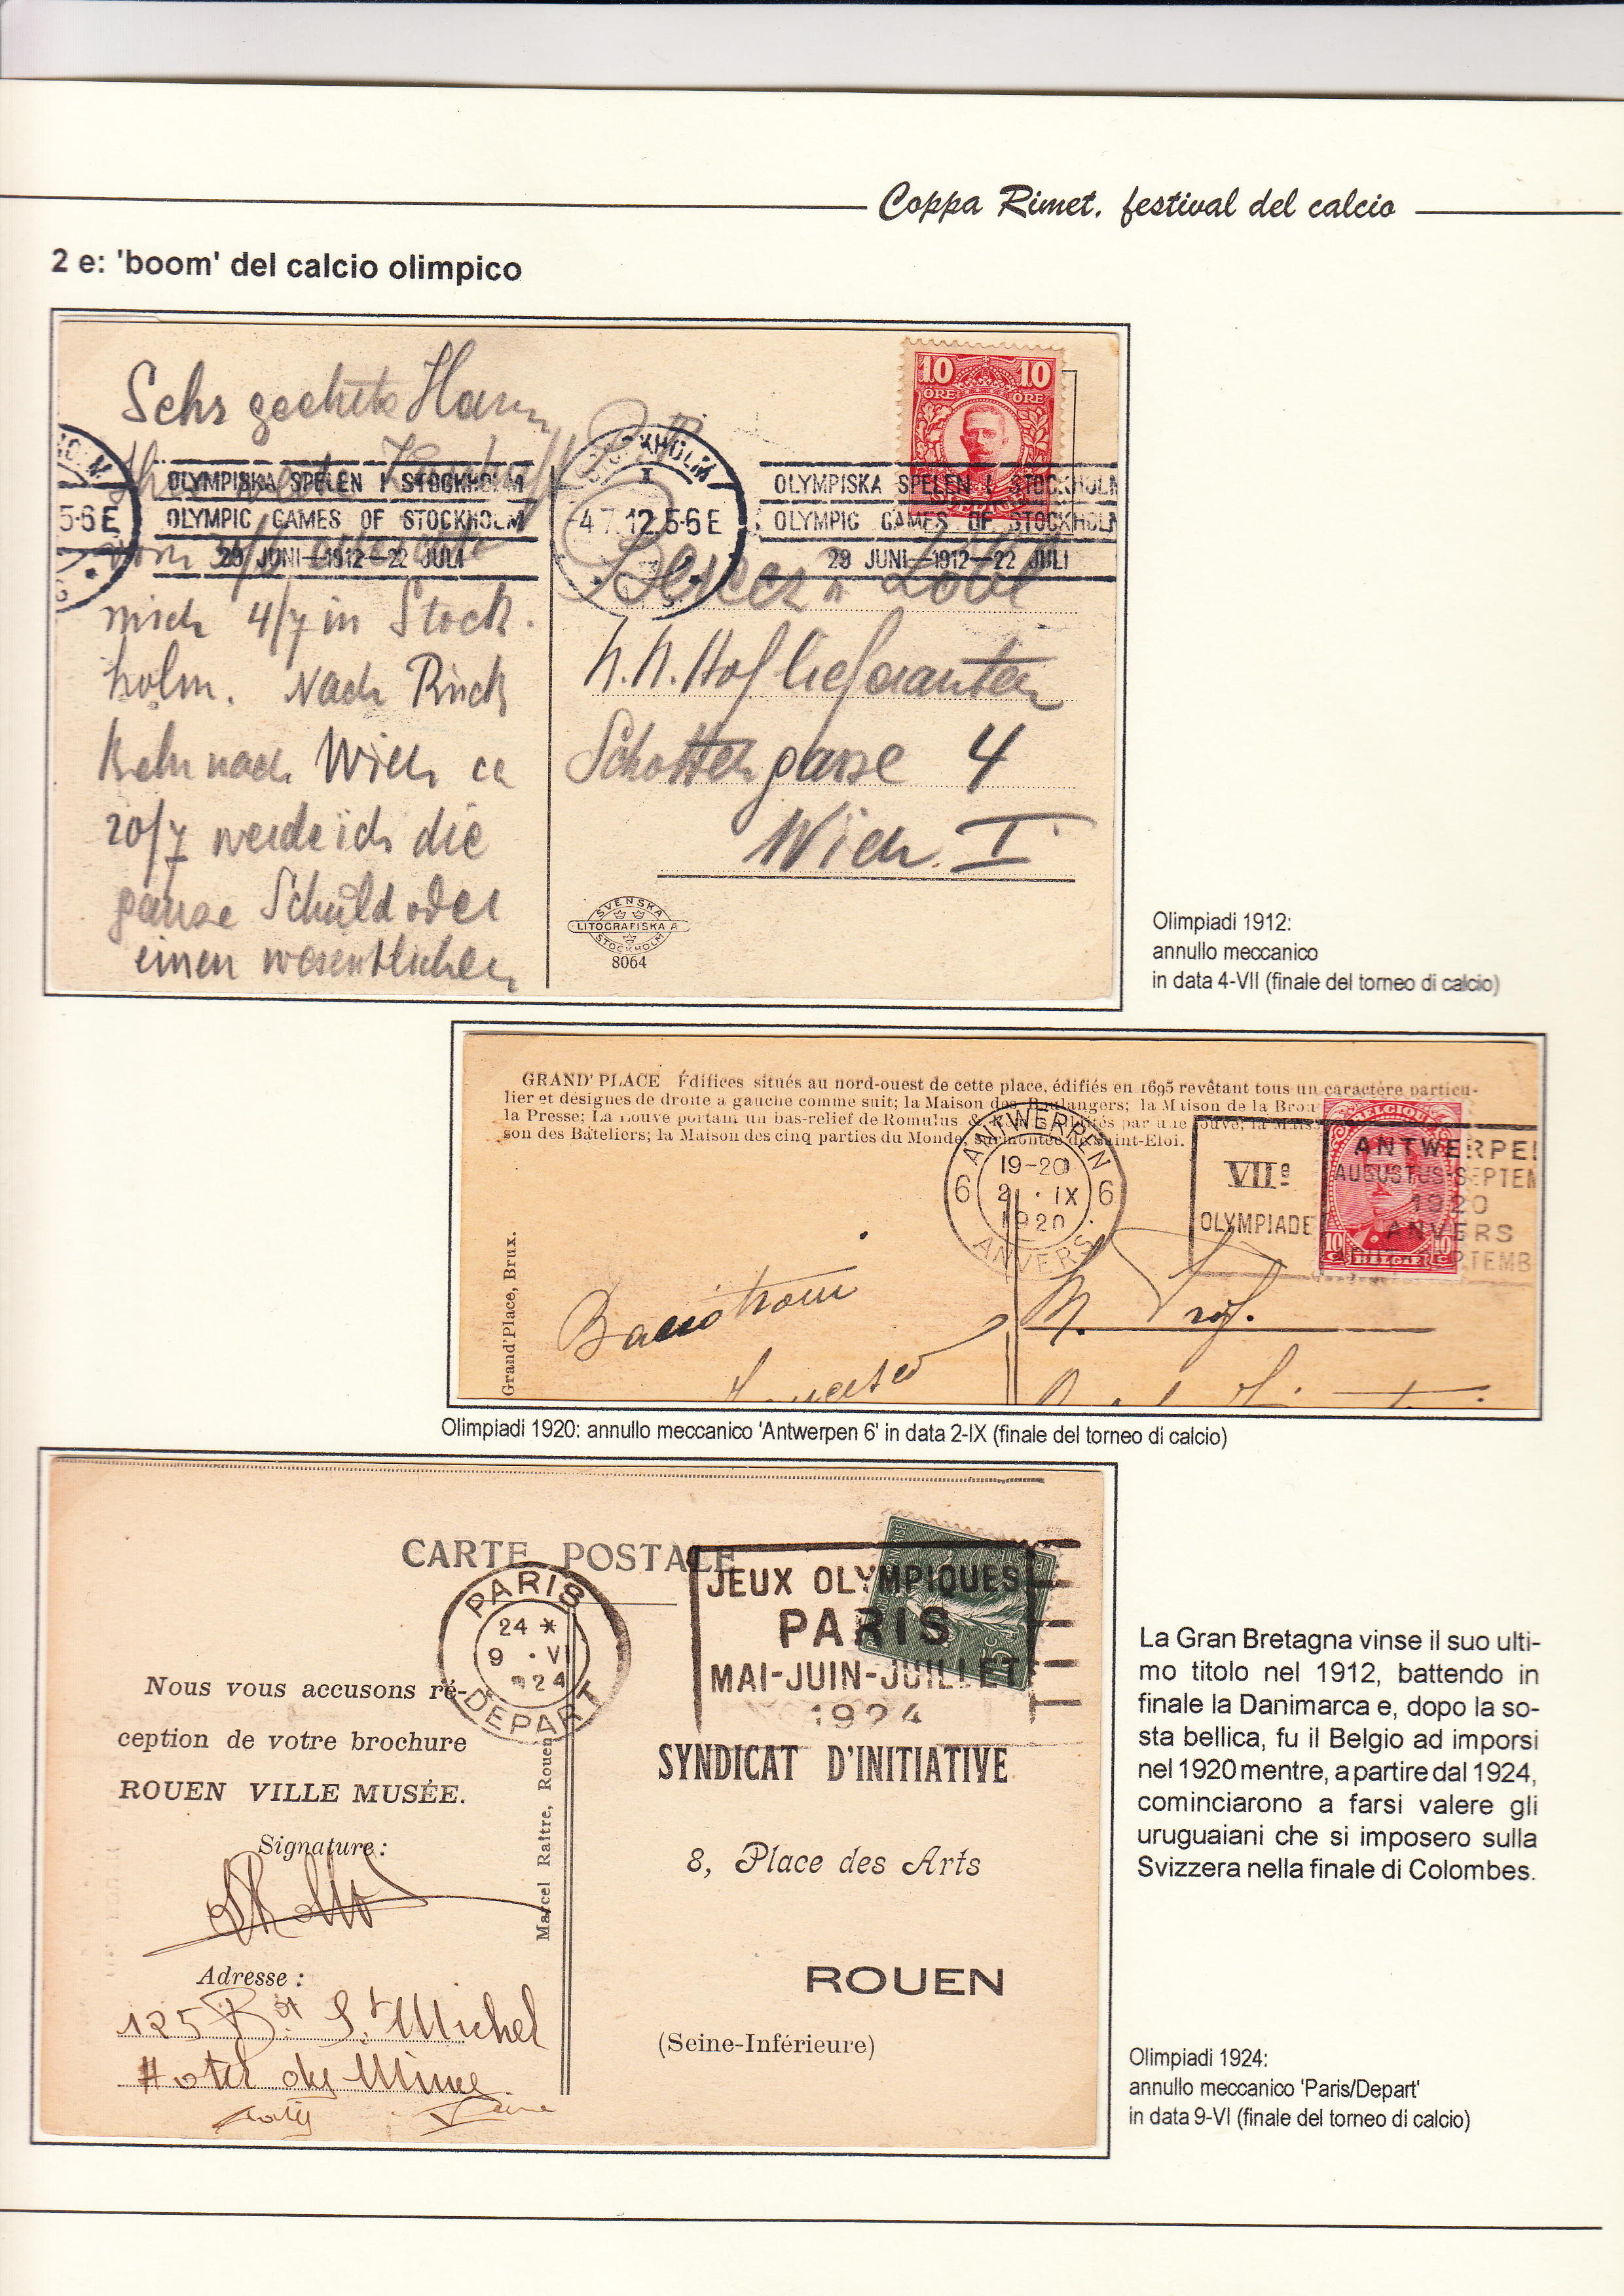 Coppa Rimet, festival del calcio
2 e: 'boom' del calcio olimpico
10 10
ÖRE ÖRE
Sehr geehrte
STOCKHOLM
4.7.12.5-6E
5-6E
OLYMPISKA SPELEN I STOCKHOLM
OLYMPIC GAMES OF STOCKHOLM
29 JUNI—1912—22 JULI
OLYMPISKA SPELEN I STOCKHOLM
OLYMPIC GAMES OF STOCKHOLM
29 JUNI—1912—22 JULI
mich 4/7 in Stock-
holm. Nach Rück
kehr nach Wien ca
20/7 werde ich die
ganze Schuld oder
einen wesentlichen
Hoflieferanten
Schottengasse 4
Wien. I
SVENSKA
LITOGRAFISKA A
STOCKHOLM
8064
Olimpiadi 1912:
annullo meccanico
in data 4-VII (finale del torneo di calcio)
GRAND' PLACE Édifices situés au nord-ouest de cette place, édifiés en 1695 revêtant tous un caractère particu-
lier et désignes de droite a gauche comme suit; la Maison des Boulangers; la Maison de la Brou
la Presse; La Louve portant un bas-relief de Romulus & par une louve; la Mais
son des Bateliers; la Maison des cinq parties du Monde, surmontée de Saint-Eloi.
ANTWERPEN
19-20
2 · IX
1920
6 6
ANVERS
VIIe
OLYMPIADE
ANTWERPEN
AUGUSTUS-SEPTEM
1920
ANVERS
AOUT-SEPTEMB
BELGIQUE
10 10
BELGIË
Grand'Place, Brux.
M. Prof.
Francesco
Olimpiadi 1920: annullo meccanico 'Antwerpen 6' in data 2-IX (finale del torneo di calcio)
CARTE POSTALE
PARIS
24 *
9 · VI
1924
DEPART
JEUX OLYMPIQUES
PARIS
MAI-JUIN-JUILLET
1924
15c
Nous vous accusons ré-
ception de votre brochure
ROUEN VILLE MUSÉE.
Signature:
Adresse :
125 Bd St Michel
Hotel des Mines
Marcel Raitre, Rouen
SYNDICAT D'INITIATIVE
8, Place des Arts
ROUEN
(Seine-Inférieure)
La Gran Bretagna vinse il suo ulti-
mo titolo nel 1912, battendo in
finale la Danimarca e, dopo la so-
sta bellica, fu il Belgio ad imporsi
nel 1920 mentre, a partire dal 1924,
cominciarono a farsi valere gli
uruguaiani che si imposero sulla
Svizzera nella finale di Colombes.
Olimpiadi 1924:
annullo meccanico 'Paris/Depart'
in data 9-VI (finale del torneo di calcio)